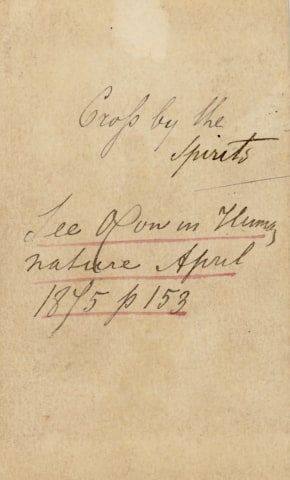 Croſs by the
Spirits
See Oxon in Human
nature April
1875 p 153